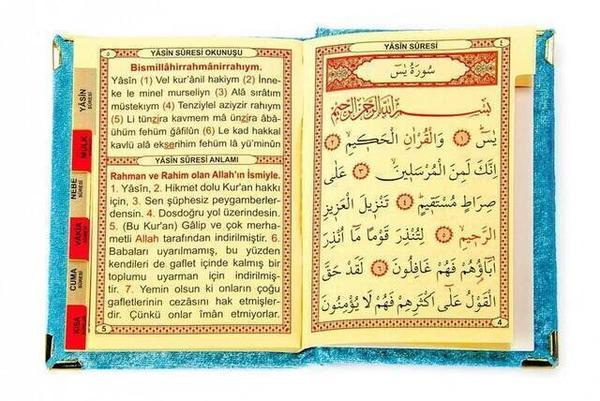 YÂSİN SÛRESİ OKUNUŞU
Bismillâhirrahmânirrahıym.
Yâsîn (1) Vel kur'ânil hakiym (2) İnne-
ke le minel murseliyn (3) Alâ sırâtım
müstekıym (4) Tenziylel aziyzir rahıym
(5) Li tünzira kavmem mâ ünzira âbâ-
ühüm fehüm ğâfilûn (6) Le kad hakkal
kavlü alâ ekserihim fehüm lâ yü'minûn
YÂSİN SÛRESİ ANLAMI
Rahman ve Rahim olan Allah'ın İsmiyle.
1. Yâsîn, 2. Hikmet dolu Kur'an hakkı
için, 3. Sen şüphesiz peygamberler-
densin. 4. Dosdoğru yol üzerindesin.
5. (Bu Kur'an) Gâlip ve çok merha-
metli Allah tarafından indirilmiştir. 6.
Babaları uyarılmamış, bu yüzden
kendileri de gaflet içinde kalmış bir
toplumu uyarman için indirilmiş-
tir. 7. Yemin olsun ki onların çoğu
gafletlerinin cezasını hak etmişler-
dir. Çünkü onlar îman etmiyorlar.
5
YÂSİN
SÛRESİ
MÜLK
NEBE
SÛRESİ
VÂKIA
CUMA
SÛRESİ
KISA
YÂSİN SÛRESİ
٤
سورة يس
بسم الله الرحمن الرحيم
يس ١ وَالْقُرْاٰنِ الْحَكِيمِ ٢
اِنَّكَ لَمِنَ الْمُرْسَلِينَ ٣ عَلٰى
صِرَاطٍ مُسْتَقِيمٍ ٤ تَنْزِيلَ الْعَزِيزِ
الرَّحِيمِ ٥ لِتُنْذِرَ قَوْمًا مَٓا اُنْذِرَ
اٰبَٓاؤُهُمْ فَهُمْ غَافِلُونَ ٦ لَقَدْ حَقَّ
الْقَوْلُ عَلٰٓى اَكْثَرِهِمْ فَهُمْ لَا يُؤْمِنُونَ
4